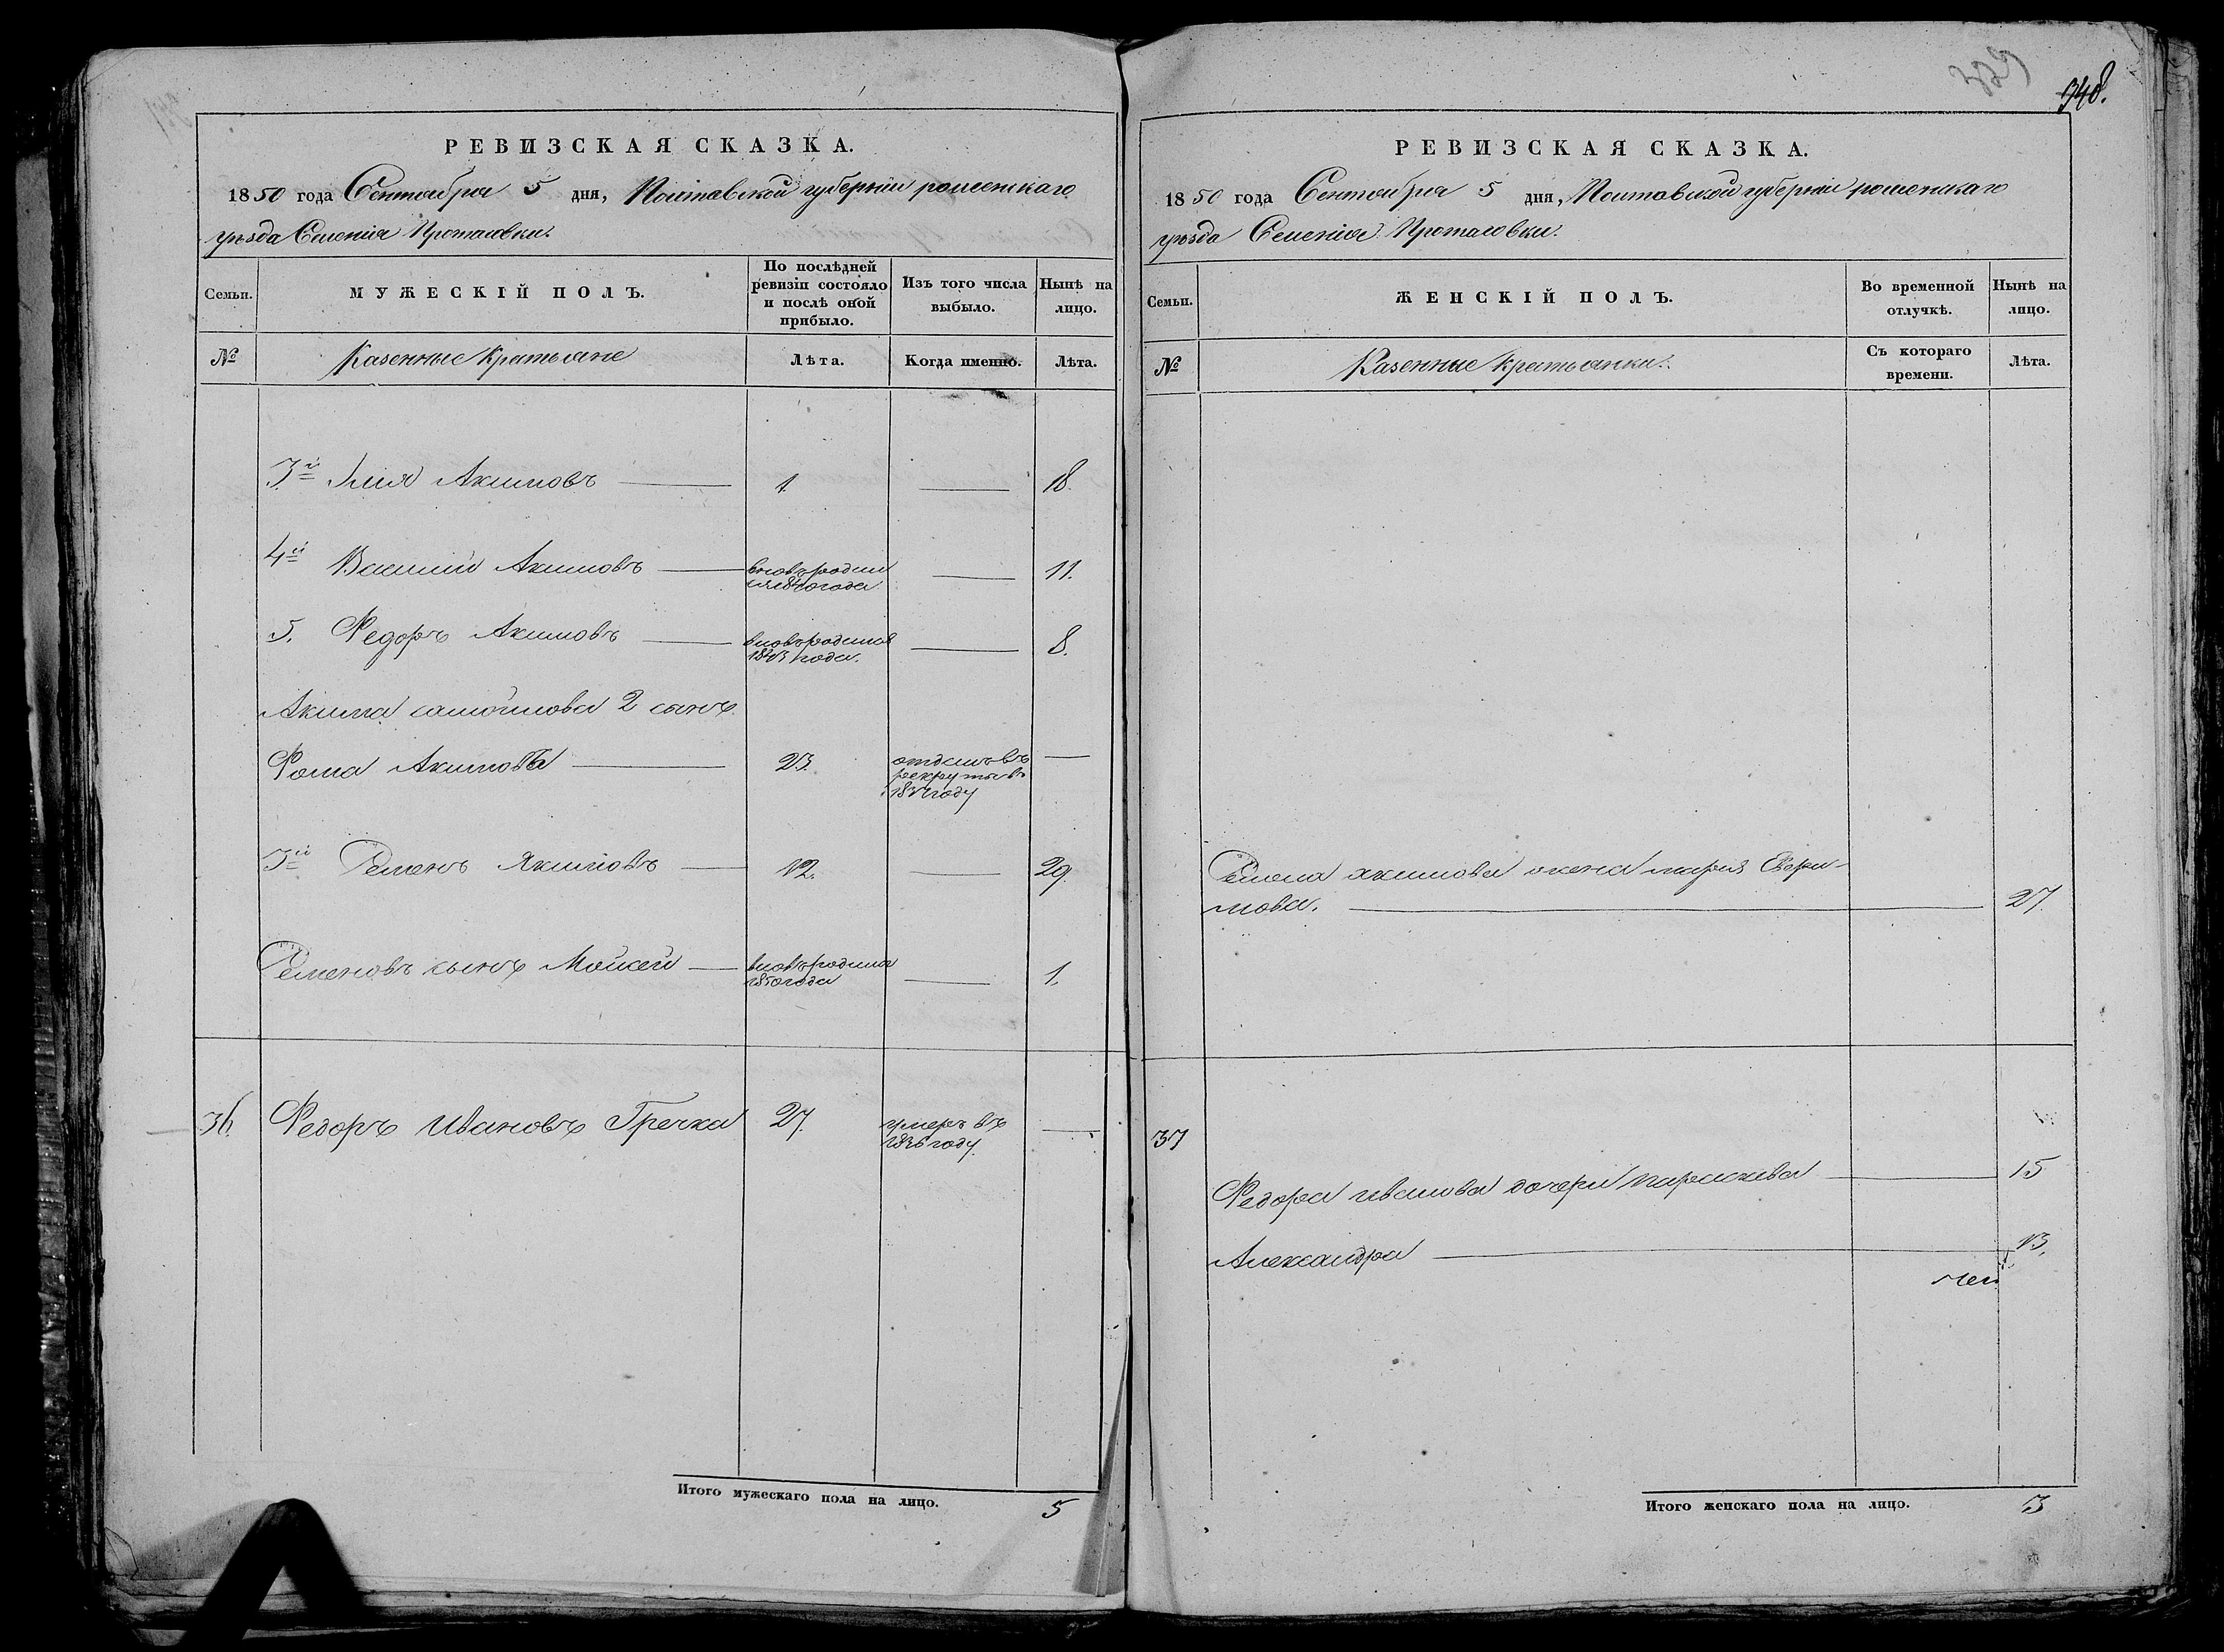 348.
РЕВИЗСКАЯ СКАЗКА.
1850 года Сентября 5 дня, Полтавской губерніи роменскаго
уѣзда Селенія Протасовки.
Семьи.
МУЖЕСКІЙ ПОЛЪ.
По послѣдней
ревизіи состояло
и послѣ оной
прибыло.
Изъ того числа
выбыло.
Нынѣ на
лицо.
№
Казенные Крестьяне
Лѣта.
Когда именно.
Лѣта.
3й Илія Акимовъ 1. 18.
4й Василий Акимовъ вновь родил
ся 1840 года 11.
5. Федоръ Акимовъ вновь родился
1843 года. 8.
Акима самойлова 2 сынъ
Фома Акимовъ 23. отданъ въ
рекруты въ
году
3й Семенъ Якимовъ 12. 29.
Семеновъ сынъ Мойсей вновь родился
1850 года 1.
36. Федоръ Ивановъ Гречка 27. умеръ въ
1836 году.
Итого мужескаго пола на лицо. 5
РЕВИЗСКАЯ СКАЗКА.
1850 года Сентября 5 дня, Полтавской губерніи роменскаго
уѣзда Селенія Протасовки.
Семьи.
ЖЕНСКІЙ ПОЛЪ.
Во временной
отлучкѣ.
Нынѣ на
лицо.
№
Казенные крестьянки.
Съ котораго
времени.
Лѣта.
Семена якимова жена марія
мова. 27.
37
Федора иванова дочери параскева 15
Александра 13.
Итого женскаго пола на лицо. 3